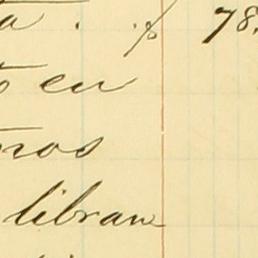 a . . $ 78.
o en
nos
libran